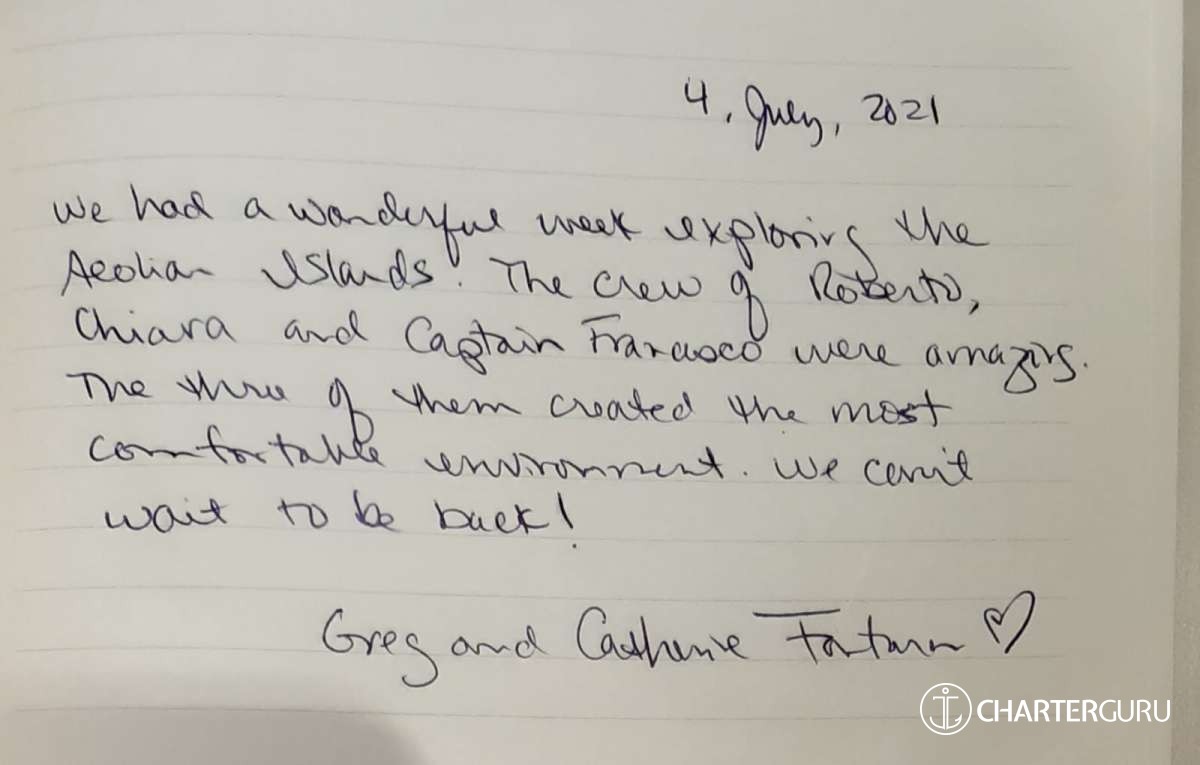 4, July, 2021
We had a wonderful week exploring the
Aeolian Islands. The crew of Roberto,
Chiara and Captain Francisco were amazing.
The three of them created the most
comfortable environment. We can't
wait to be back!
Greg and Catherine
CHARTERGURU